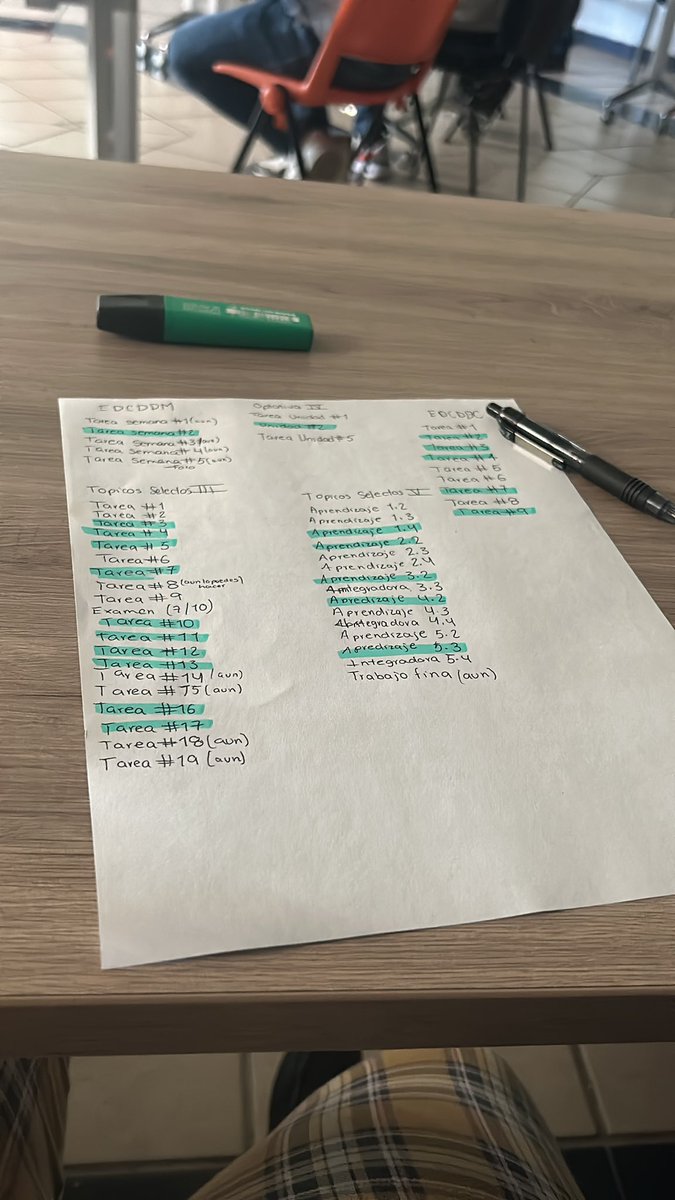 EDCDDM
Tarea semana #1 (aun)
Tarea semana #2
Tarea Semana #3 (aun)
Tarea Semana #4 (aun)
Tarea Semana #5 (aun)
Foro
Optativa IV
Tarea Unidad #1
Unidad #2
Tarea Unidad #5
EDCDDC
Tarea #1
Tarea #2
Tarea #3
Tarea #4
Tarea #5
Tarea #6
Tarea #7
Tarea #8
Tarea #9
Topicos Selectos III
Tarea #1
Tarea #2
Tarea #3
Tarea #4
Tarea #5
Tarea #6
Tarea #7
Tarea #8 (aun lo puedes hacer
Tarea #9
Examen (7/10)
Tarea #10
Tarea #11
Tarea #12
Tarea #13
Tarea #14 (aun)
Tarea #15 (aun)
Tarea #16
Tarea #17
Tarea #18 (aun)
Tarea #19 (aun)
Topicos Selectos V
Aprendizaje 1.2
Aprendizaje 1.3
Aprendizaje 1.4
Aprendizaje 2.2
Aprendizaje 2.3
Aprendizaje 2.4
Aprendizaje 3.2
Integradora 3.3
Apredizaje 4.2
Aprendizaje 4.3
Integradora 4.4
Aprendizaje 5.2
Apredizaje 5.3
Integradora 5.4
Trabajo fina (aun)